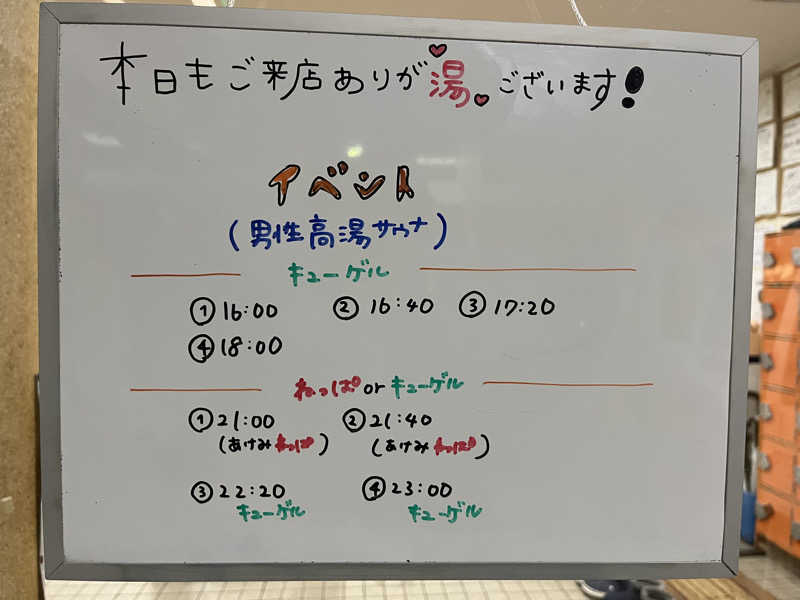 本日もご来店ありが湯ございます!
イベント
(男性高湯サウナ)
キューゲル
①16:00 ②16:40 ③17:20
④18:00
ねっぱ or キューゲル
①21:00 ②21:40
(あけみねっぱ) (あけみねっぱ)
③22:20 ④23:00
キューゲル キューゲル